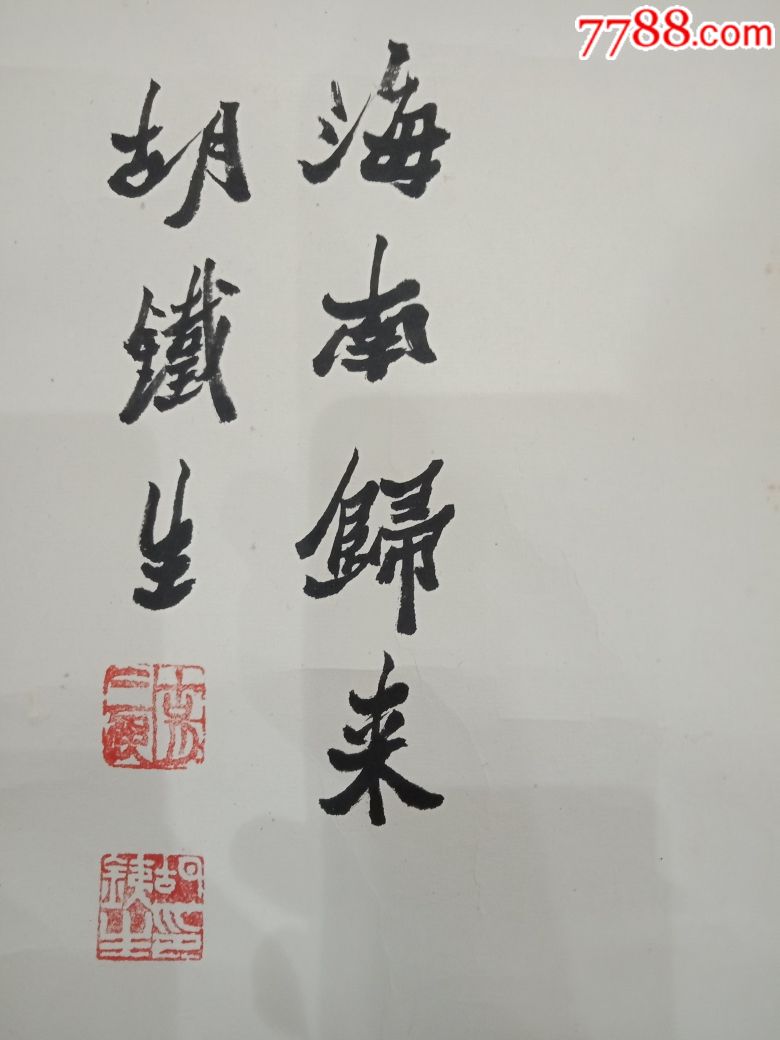 7788.com
海南歸来
胡鐵生
胡鉄生印